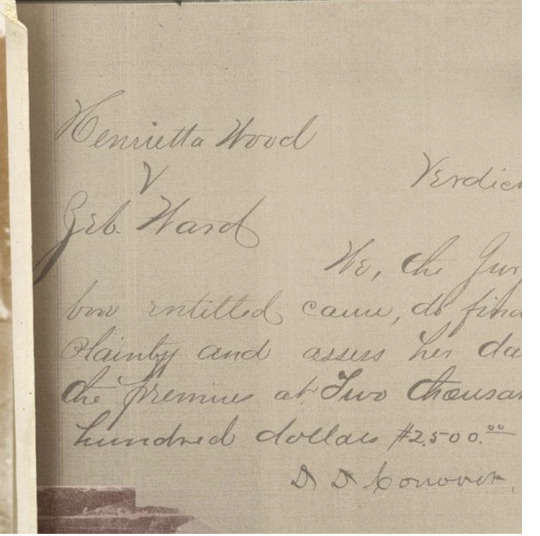 Henrietta Wood
V Verdic
Zeb. Ward
We, the Jur
bove entitled cause, do find
Plaintif and assess her da
the premises at Two thousan
hundred dollars $2,500.00
D D Conover,